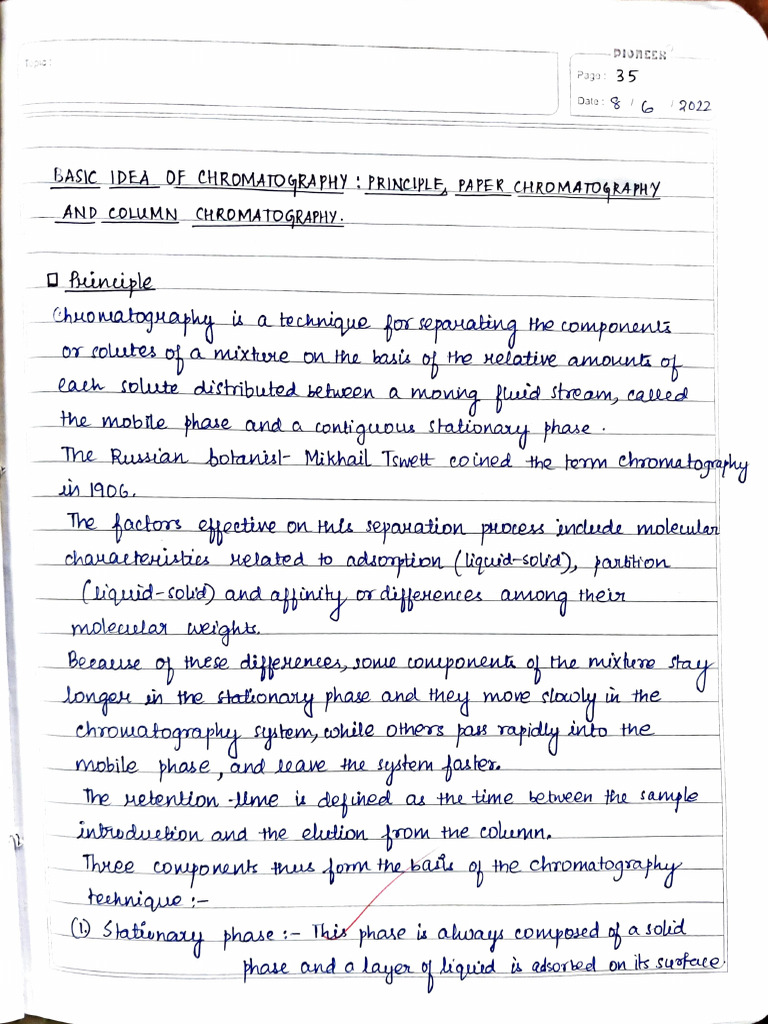 Topic:
PIONEER
Page: 35
Date: 8 / 6 / 2022
BASIC IDEA OF CHROMATOGRAPHY : PRINCIPLE, PAPER CHROMATOGRAPHY
AND COLUMN CHROMATOGRAPHY.
Principle
Chromatography is a technique for separating the components
or solutes of a mixture on the basis of the relative amounts of
each solute distributed between a moving fluid stream, called
the mobile phase and a contiguous stationary phase.
The Russian botanist- Mikhail Tswett coined the term chromatography
in 1906.
The factors effective on this separation process include molecular
characteristics related to adsorption (liquid-solid), partition
(liquid-solid) and affinity or differences among their
molecular weights.
Because of these differences, some components of the mixture stay
longer in the stationary phase and they move slowly in the
chromatography system, while others pass rapidly into the
mobile phase, and leave the system faster.
The retention -time is defined as the time between the sample
introduction and the elution from the column.
Three components thus form the basis of the chromatography
technique :-
(1) Stationary phase :- This phase is always composed of a solid
phase and a layer of liquid is adsorbed on its surface.